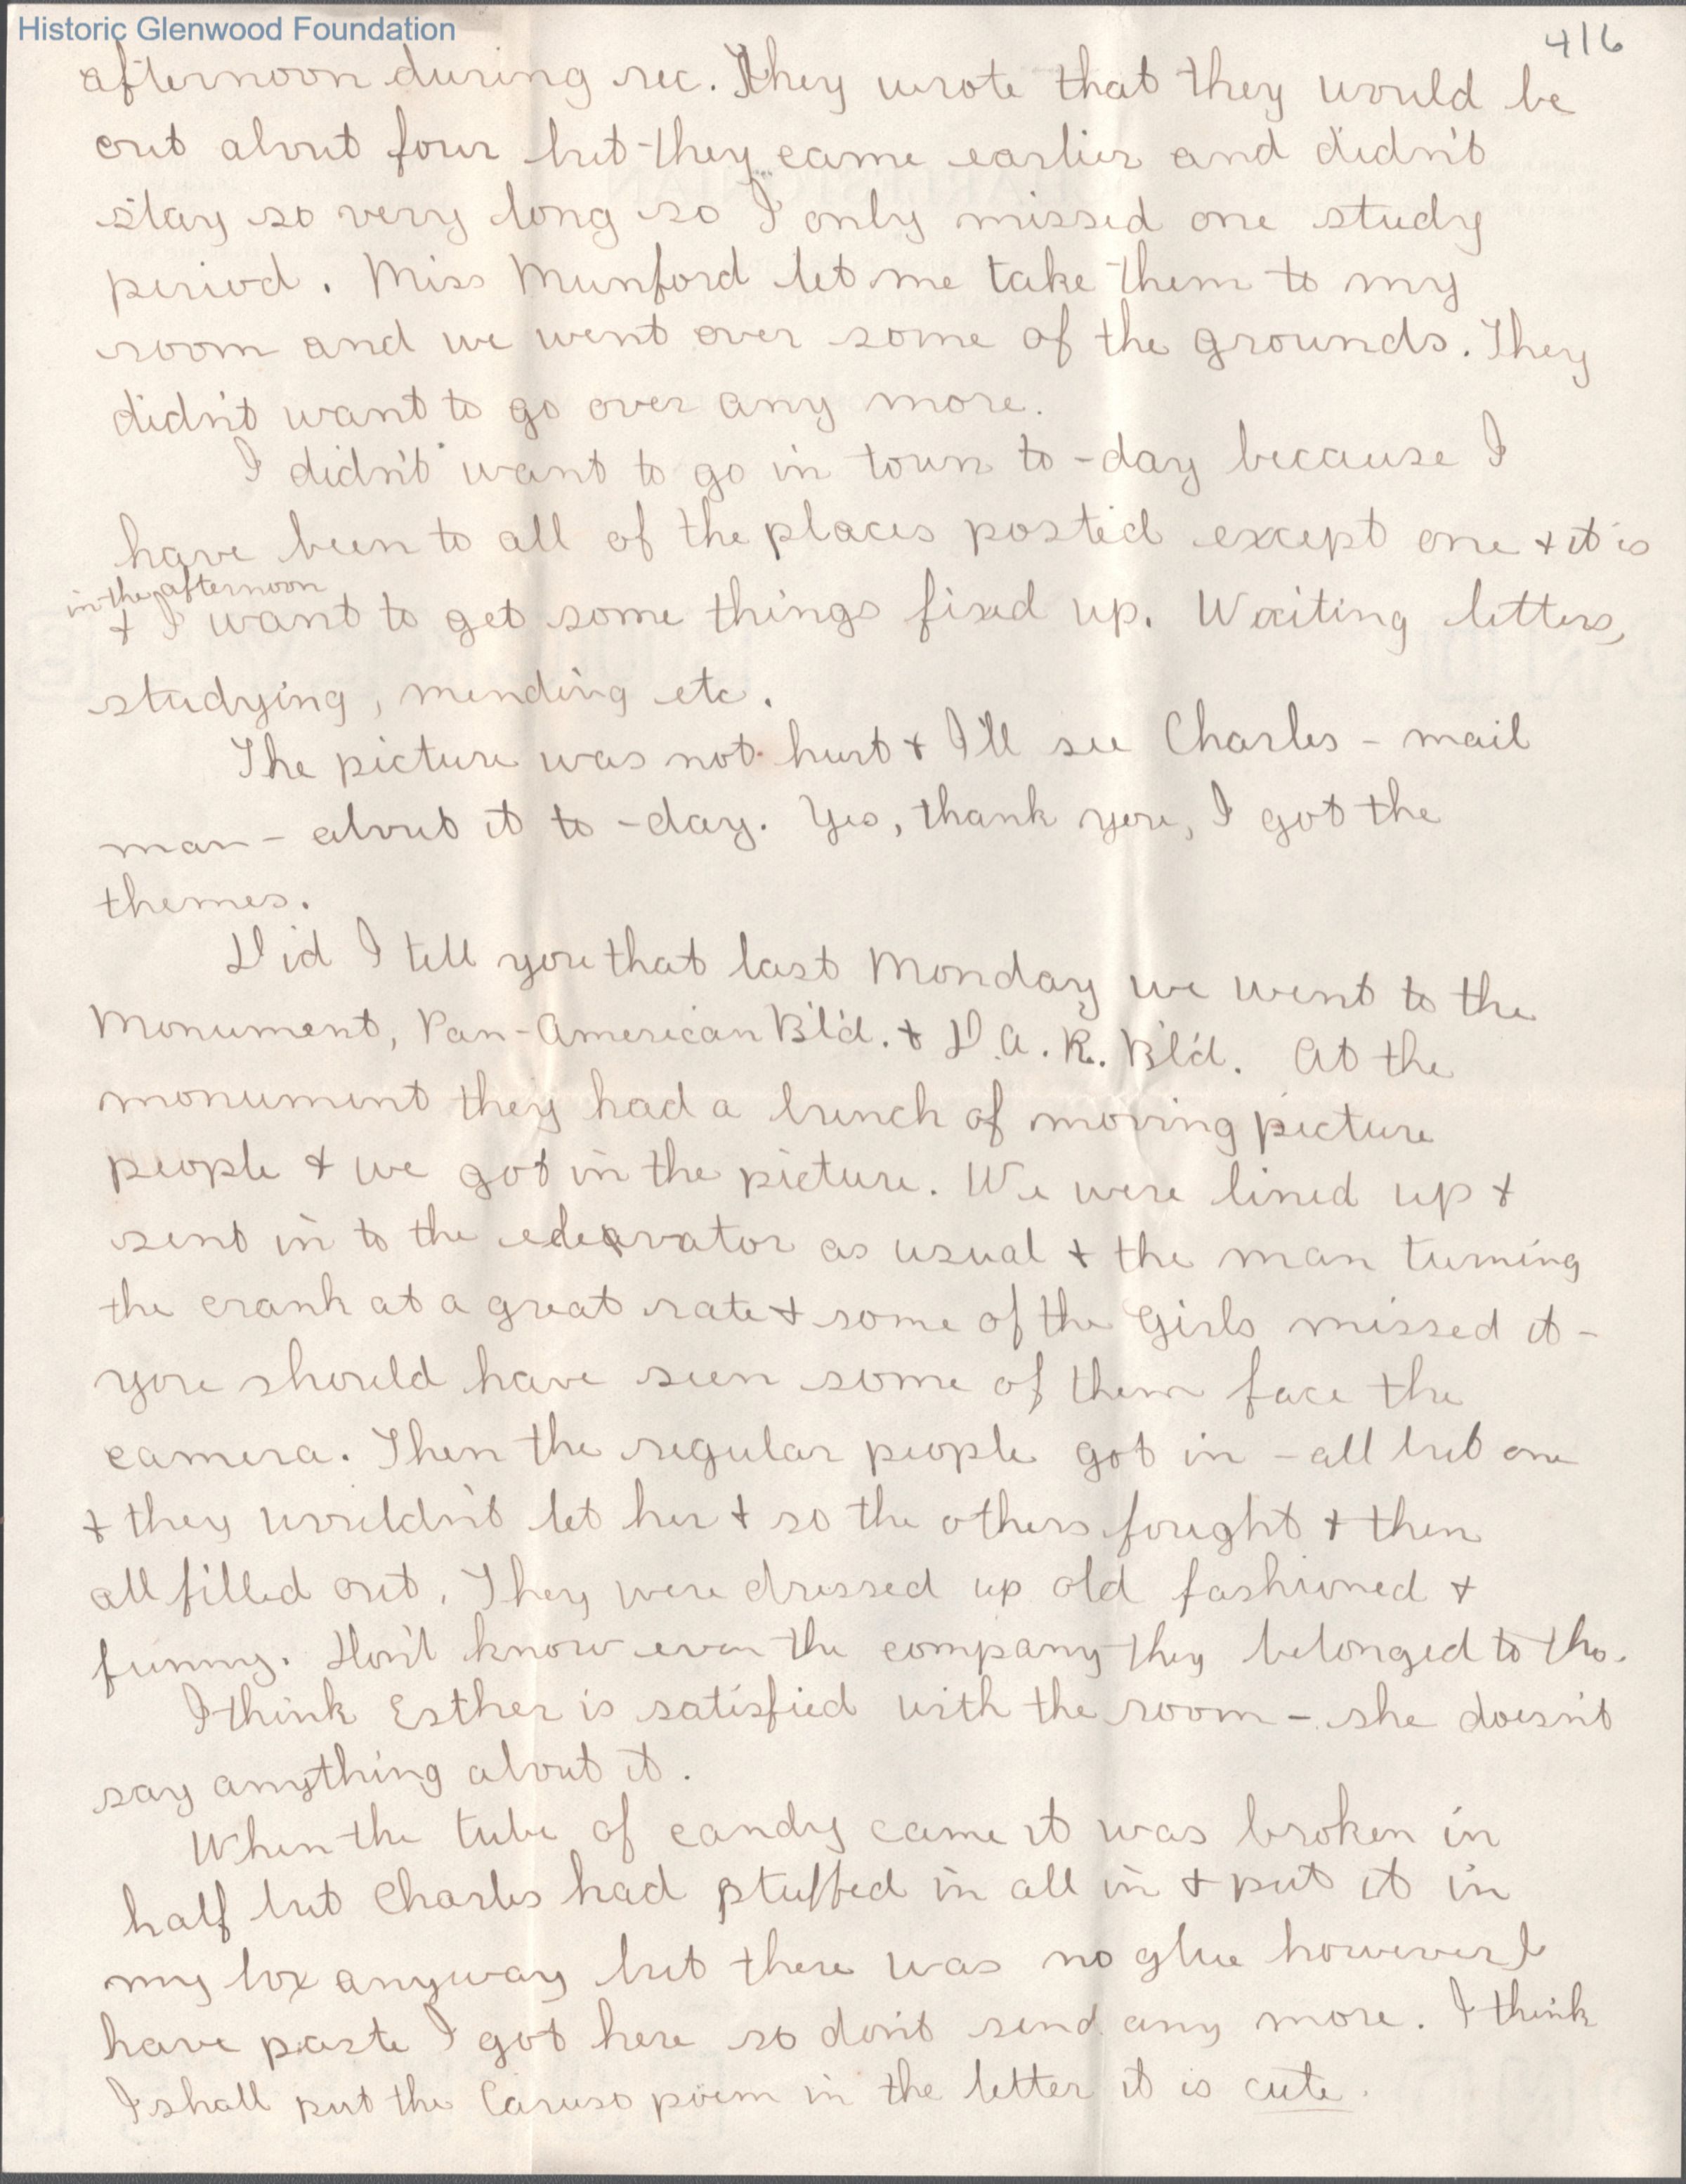 Historic Glenwood Foundation
416
afternoon during rec. They wrote that they would be
out about four but they came earlier and didn't
stay so very long so I only missed one study
period. Miss Munford let me take them to my
room and we went over some of the grounds. They
didn't want to go over any more.
I didn't want to go in town to-day because I
have been to all of the places posted except one + it is
in the afternoon
+ I want to get some things fixed up. Writing letters,
studying, mending etc.
The picture was not hurt + I'll see Charles - mail
man - about it to-day. Yes, thank you, I got the
themes.
Did I tell you that last Monday we went to the
Monument, Pan-American Bl'd. + D.A.R. Bl'd. At the
monument they had a bunch of moving picture
people + we got in the picture. We were lined up +
sent in to the elevator as usual + the man turning
the crank at a great rate + some of the girls missed it -
you should have seen some of them face the
camera. Then the regular people got in - all but one
+ they wouldn't let her + so the others fought + then
all filled out. They were dressed up old fashioned +
funny. Don't know even the company they belonged to tho.
I think Esther is satisfied with the room - she doesn't
say anything about it.
When the tube of candy came it was broken in
half but Charles had stuffed in all in + put it in
my box anyway but there was no glue however I
have paste I got here so don't send any more. I think
I shall put the Caruso poem in the letter it is cute.